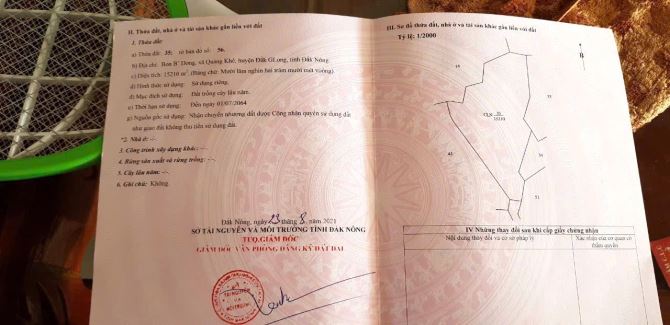 II. Thửa đất, nhà ở và tài sản khác gắn liền với đất
1. Thửa đất:
a) Thửa đất: 35; tờ bản đồ số: 56.
b) Địa chỉ: Bon B' Dơng, xã Quảng Khê, huyện Đăk GLong, tỉnh Đăk Nông
c) Diện tích: 15210 m², (Bằng chữ: Mười lăm nghìn hai trăm mười mét vuông)
d) Hình thức sử dụng: Sử dụng riêng.
đ) Mục đích sử dụng: Đất trồng cây lâu năm.
e) Thời hạn sử dụng: Đến ngày 01/07/2064
g) Nguồn gốc sử dụng: Nhận chuyển nhượng đất được Công nhận quyền sử dụng đất
như giao đất không thu tiền sử dụng đất.
*2. Nhà ở: -/-.
3. Công trình xây dựng khác: -/-.
4. Rừng sản xuất và rừng trồng: -/-.
5. Cây lâu năm: -/-.
6. Ghi chú: Không.
Đăk Nông, ngày 23 tháng 8 năm 2021
SỞ TÀI NGUYÊN VÀ MÔI TRƯỜNG TỈNH ĐĂK NÔNG
TUQ.GIÁM ĐỐC
GIÁM ĐỐC VĂN PHÒNG ĐĂNG KÝ ĐẤT ĐAI
SỞ
TÀI NGUYÊN
VÀ
MÔI TRƯỜNG
III. Sơ đồ thửa đất, nhà ở và tài sản khác gắn liền với đất
Tỷ lệ: 1/2000
CLN 35
15210
51
IV Những thay đổi sau khi cấp giấy chứng nhận
Nội dung thay đổi và cơ sở pháp lý
Xác nhận của cơ quan có
thẩm quyền